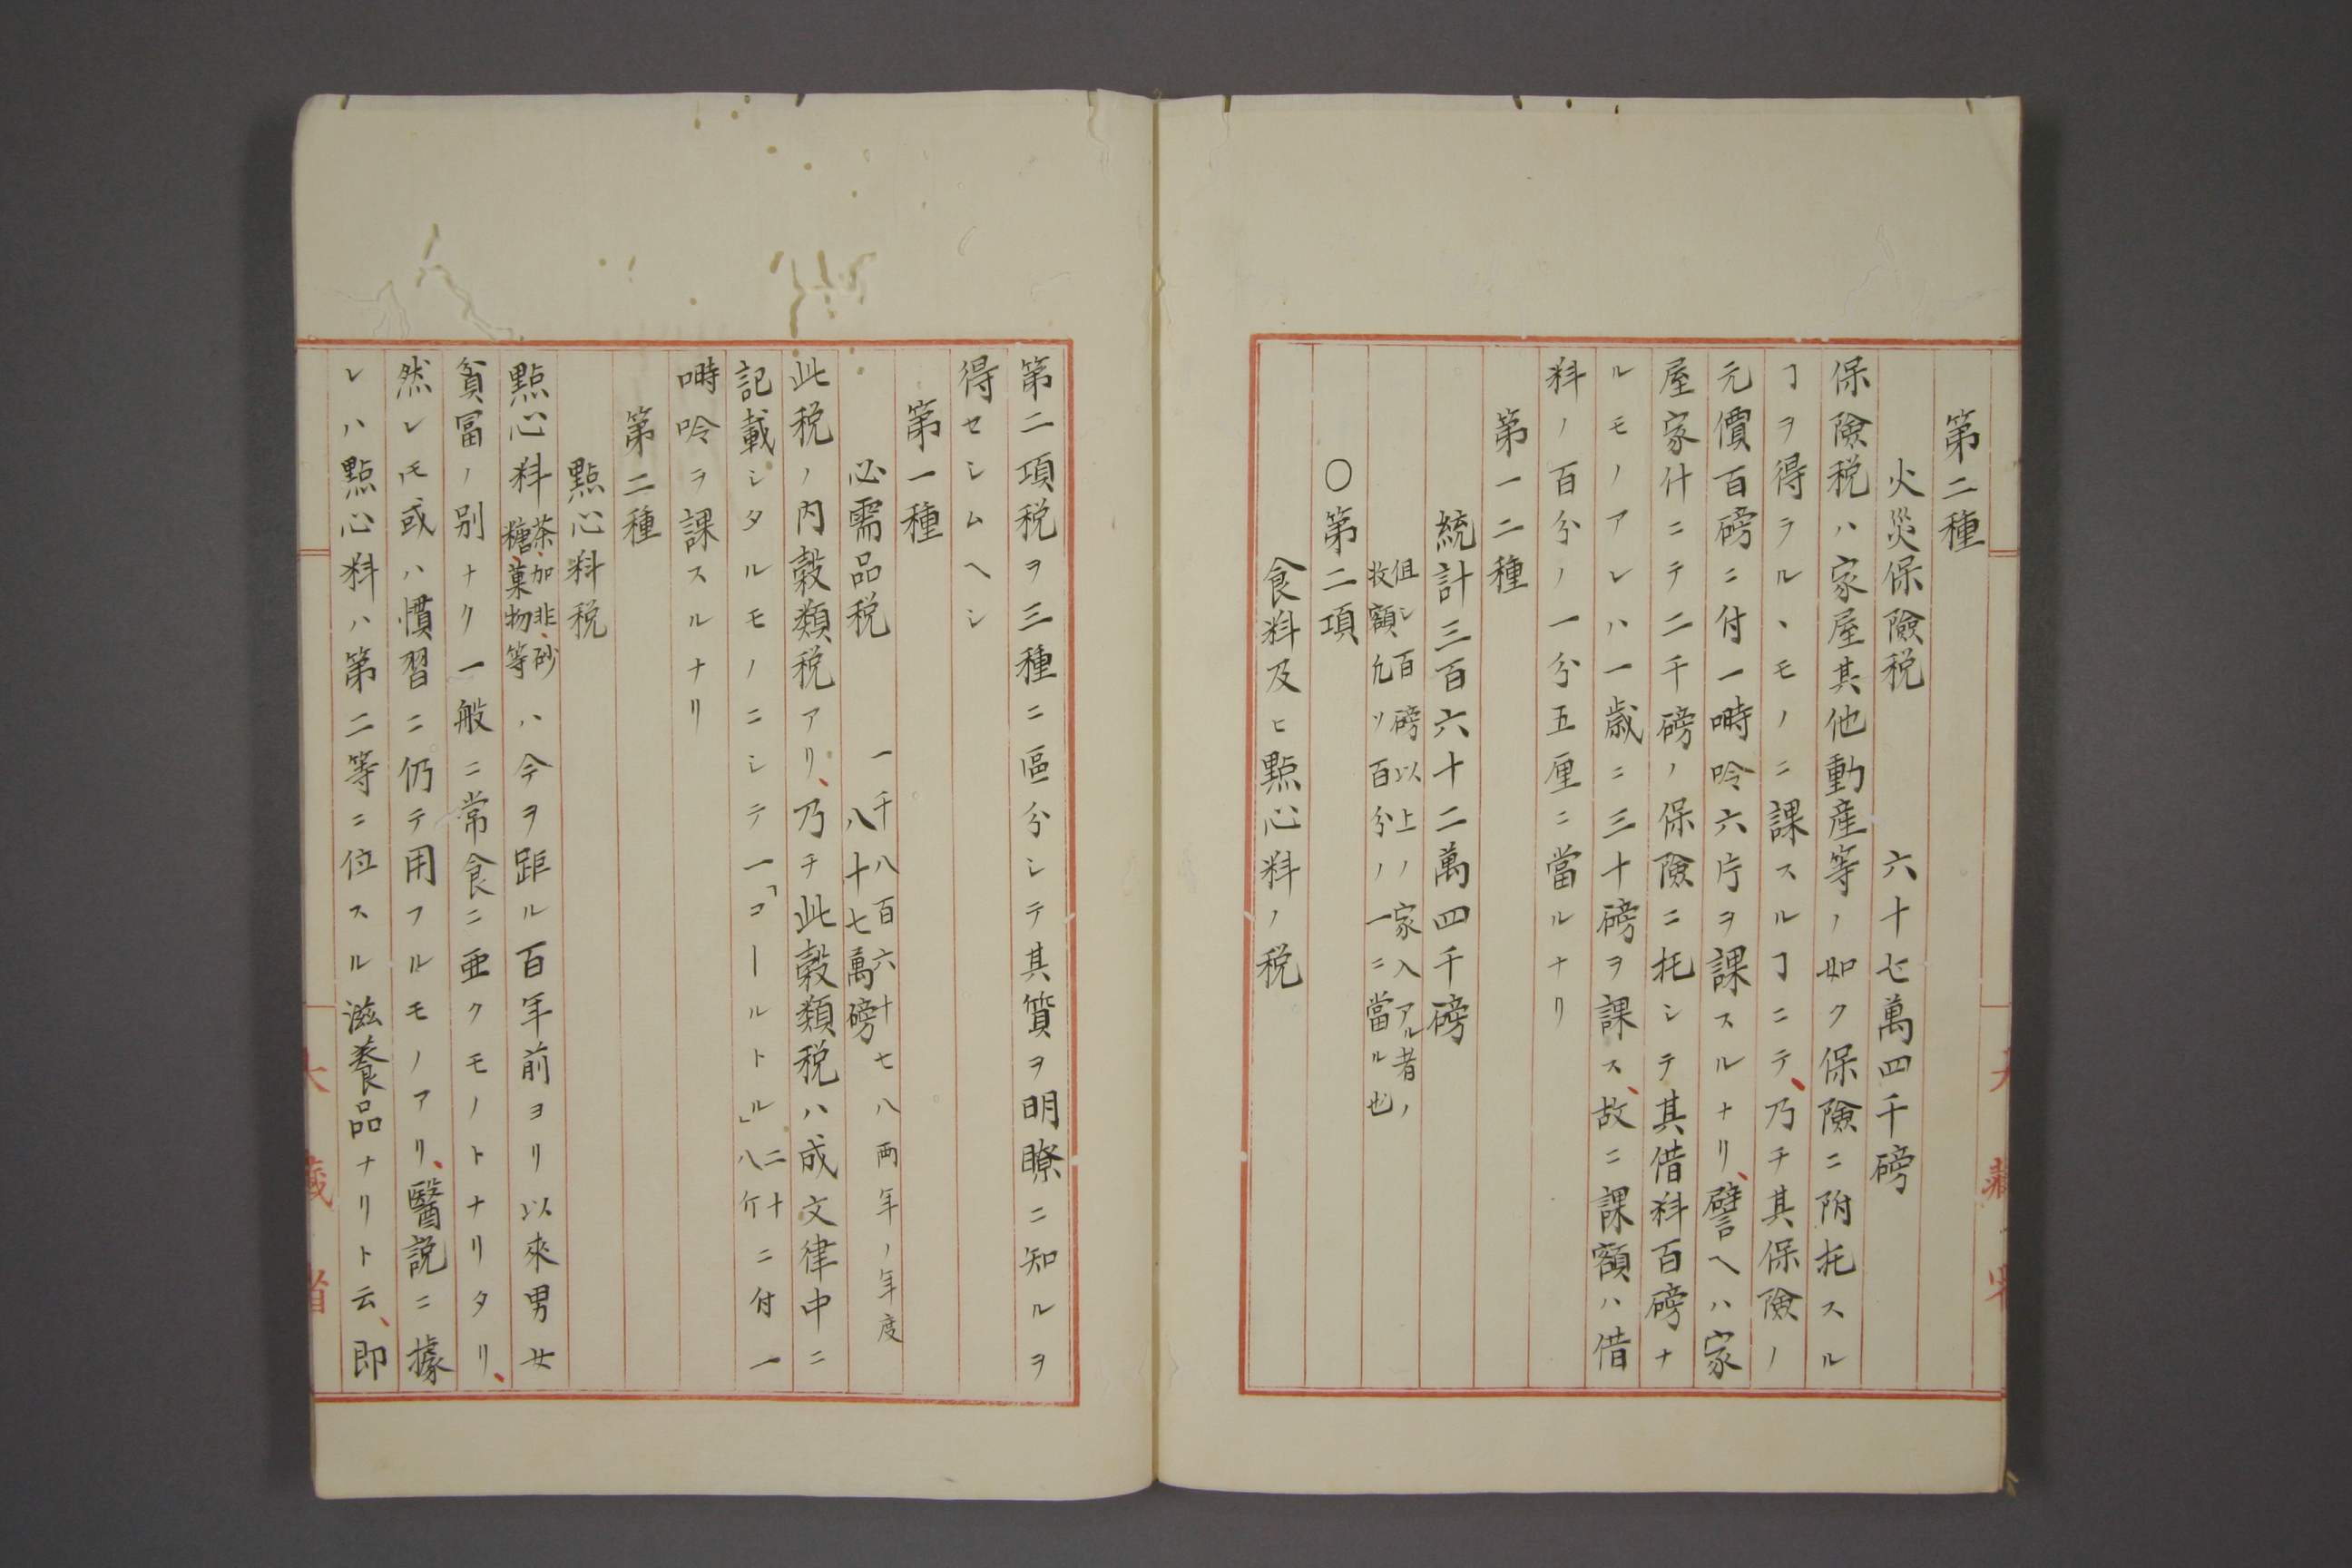 第二種
火災保險税　六十七萬四千磅
保險税ハ家屋其他動産等ノ如ク保險ニ附托スル
ヿヲ得ラルヽモノニ課スルヿニテ、乃チ其保險ノ
元價百磅ニ付一嘶呤六片ヲ課スルナリ、譬ヘハ家
屋家什ニテ二千磅ノ保險ニ托シテ其借料百磅ナ
ルモノアレハ一歳ニ三十磅ヲ課ス、故ニ課額ハ借
料ノ百分ノ一分五厘ニ當ルナリ
第一二種
統計三百六十二萬四千磅
伹シ百磅以上ノ家入アル者ノ
收額凢ソ百分ノ一ニ當ル也
〇第二項
食料及ヒ點心料ノ税
大藏省
第二項税ヲ三種ニ區分シテ其質ヲ明瞭ニ知ルヲ
得セシムヘシ
第一種
必需品税　一千八百六十七八両年ノ年度
八十七萬磅
此税ノ内穀類税アリ、乃チ此穀類税ハ成文律中ニ
記載シタルモノニシテ一「コールトル」二十八斤ニ付一
嘶呤ヲ課スルナリ
第二種
點心料税
點心料茶、加非、砂糖、菓物等ハ今ヲ距ル百年前ヨリ以來男女
貧冨ノ別ナク一般ニ常食ニ亜クモノトナリタリ、
然レ𪜈或ハ慣習ニ仍テ用フルモノアリ、醫説ニ據
レハ點心料ハ第二等ニ位スル滋養品ナリト云、即
大藏省